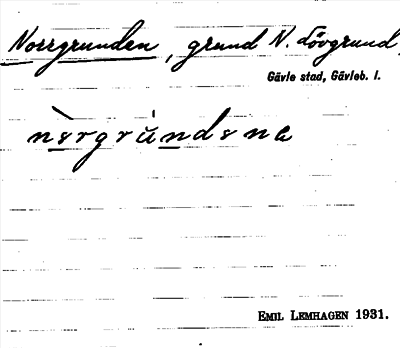 Norrgrunden, grund N. Lövgrund
Gävle stad, Gävleb. l.
EMIL LEMHAGEN 1931.